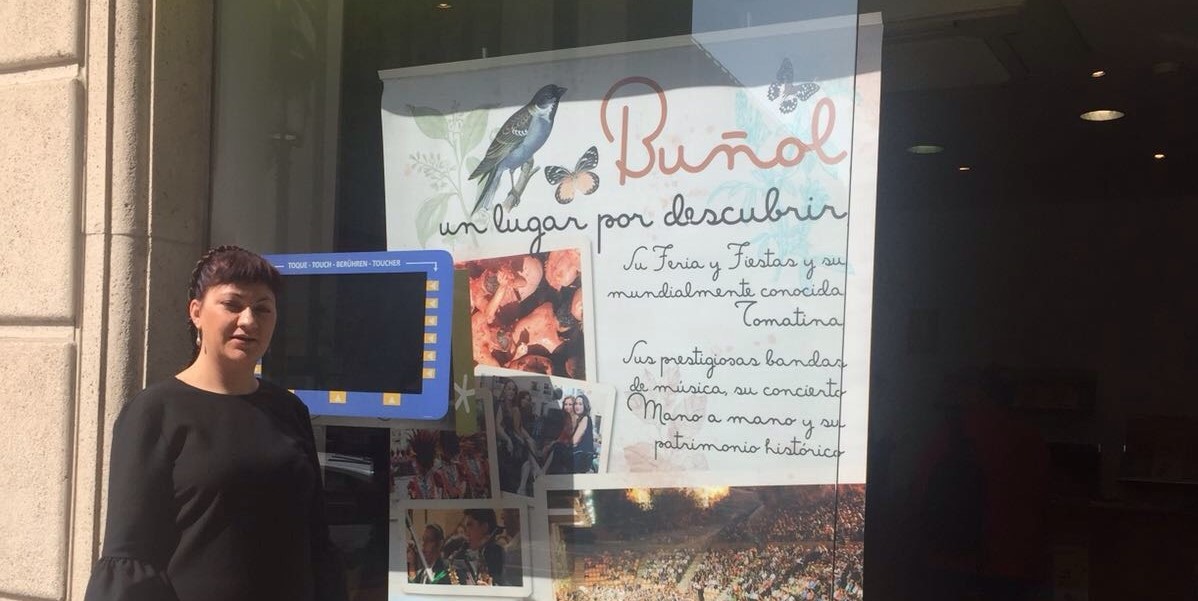 Buñol
un lugar por descubrir
TOQUE - TOUCH - BERÜHREN - TOUCHER
Su Feria y Fiestas y su
mundialmente conocida
Tomatina
Sus prestigiosas bandas
de música, su concierto
Mano a mano y su
patrimonio histórico